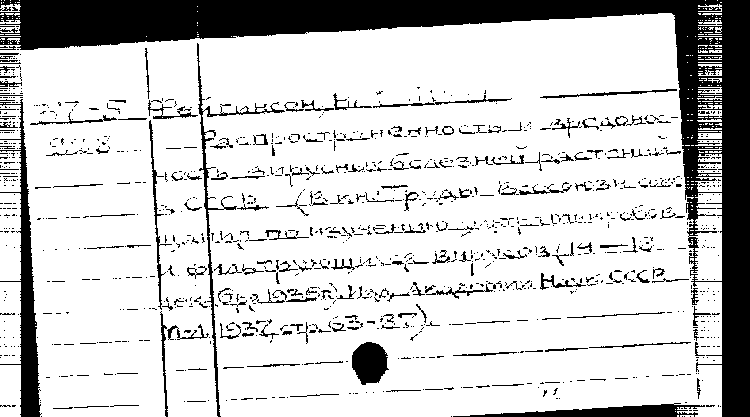 37-5 Фейгинсон, Н.
928 Распространенность и вредонос-
ность вирусных болезней растений
в СССР. (В кн: Труды Всесоюзн. сове-
щания по изучению ультрамикробов
и фильтрующихся вирусов (14-18
декабря 1935г). Изд. Академии Наук СССР
М-Л, 1937, стр 63-87).